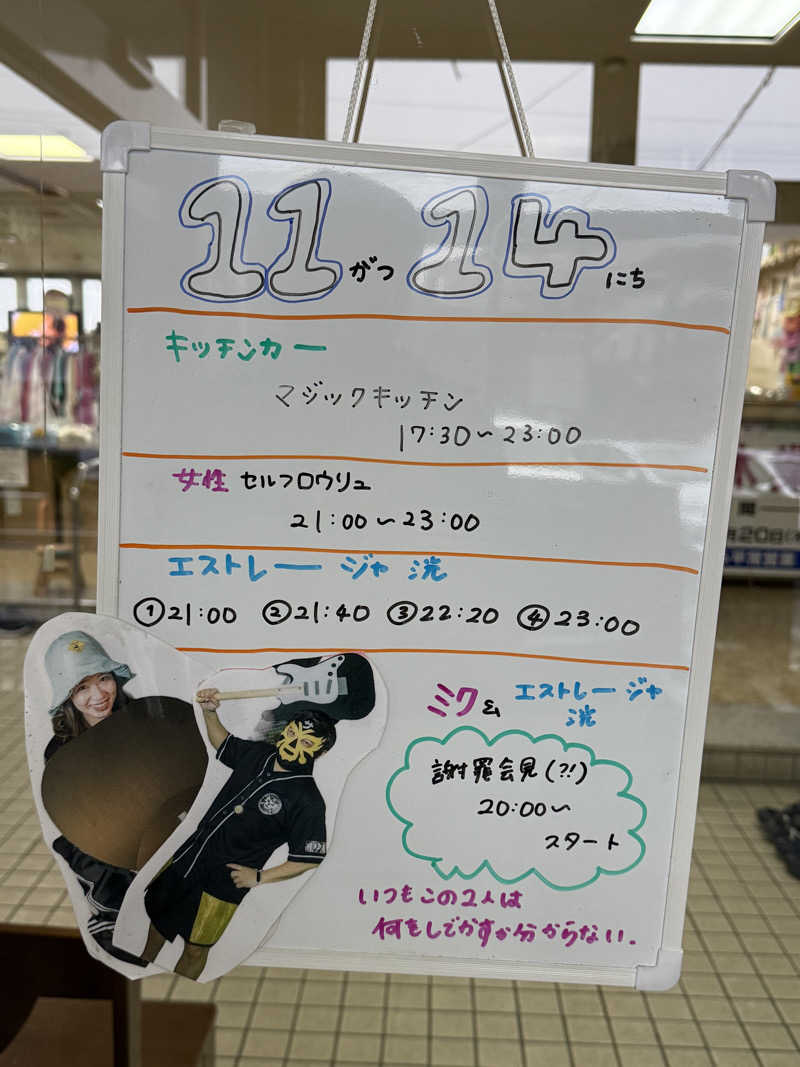 11がつ14にち
キッチンカー
マジックキッチン
17:30〜23:00
女性 セルフロウリュ
21:00〜23:00
エストレージャ 洸
①21:00 ②21:40 ③22:20 ④23:00
ミク& エストレージャ
洸
謝罪会見(?!)
20:00〜
スタート
いつもこの2人は
何をしでかすか分からない.
月20日